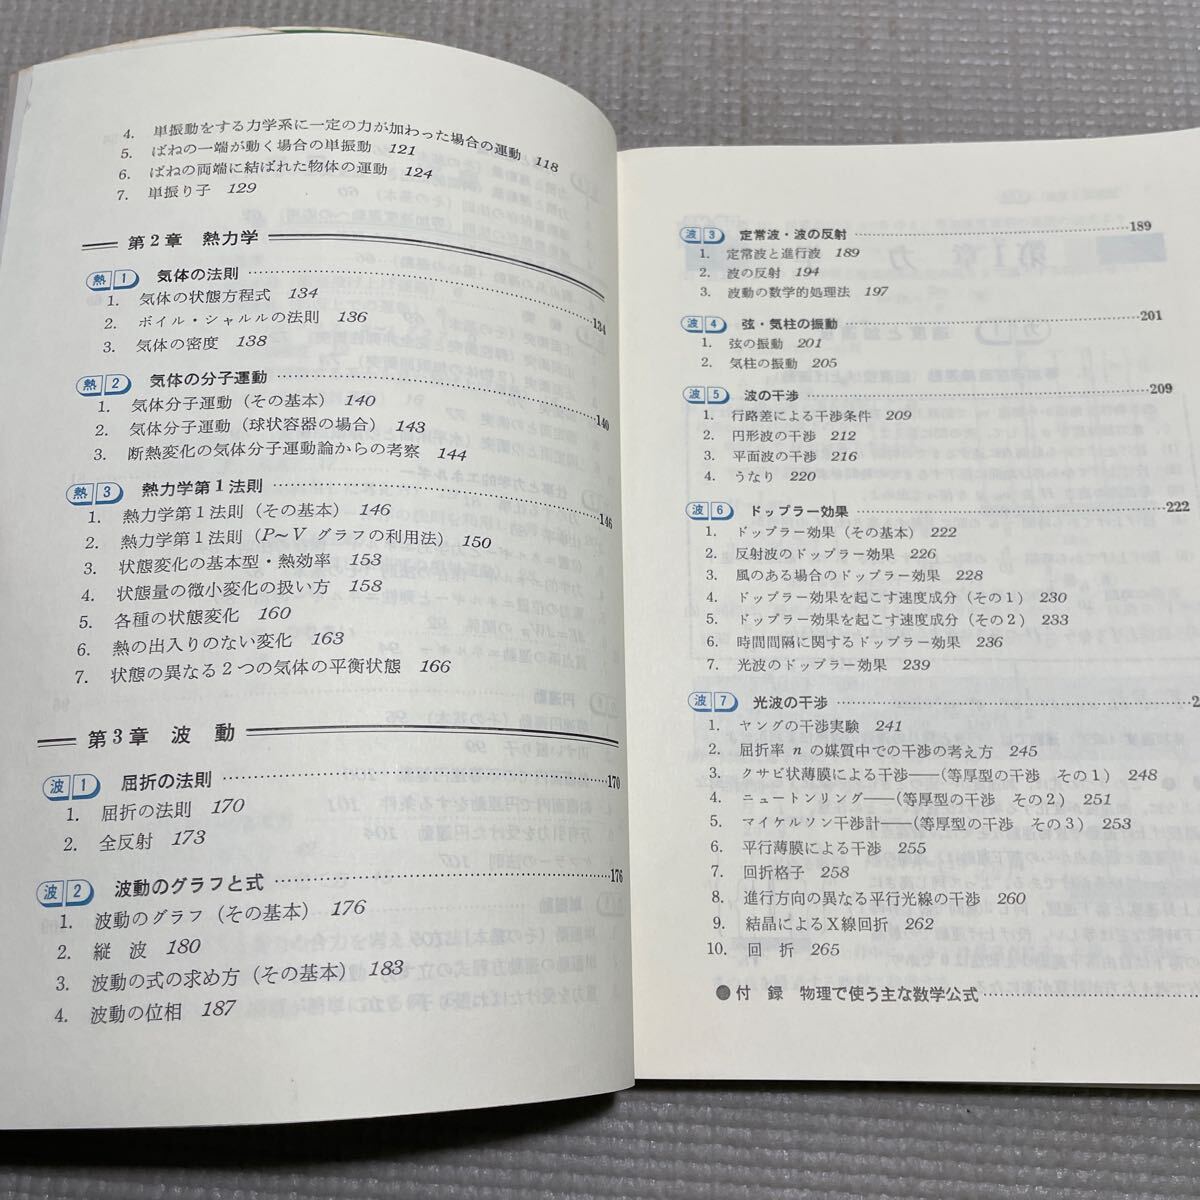 4. 単振動をする力学系に一定の力が加わった場合の運動 118
5. ばねの一端が動く場合の単振動 121
6. ばねの両端に結ばれた物体の運動 124
7. 単振り子 129
第2章 熱力学
熱 1 気体の法則 134
1. 気体の状態方程式 134
2. ボイル・シャルルの法則 136
3. 気体の密度 138
熱 2 気体の分子運動 140
1. 気体分子運動(その基本) 140
2. 気体分子運動(球状容器の場合) 143
3. 断熱変化の気体分子運動論からの考察 144
熱 3 熱力学第1法則 146
1. 熱力学第1法則(その基本) 146
2. 熱力学第1法則(P~V グラフの利用法) 150
3. 状態変化の基本型・熱効率 153
4. 状態量の微小変化の扱い方 158
5. 各種の状態変化 160
6. 熱の出入りのない変化 163
7. 状態の異なる2つの気体の平衡状態 166
第3章 波 動
波 1 屈折の法則 170
1. 屈折の法則 170
2. 全反射 173
波 2 波動のグラフと式 176
1. 波動のグラフ(その基本) 176
2. 縦 波 180
3. 波動の式の求め方(その基本) 183
4. 波動の位相 187
波 3 定常波・波の反射 189
1. 定常波と進行波 189
2. 波の反射 194
3. 波動の数学的処理法 197
波 4 弦・気柱の振動 201
1. 弦の振動 201
2. 気柱の振動 205
波 5 波の干渉 209
1. 行路差による干渉条件 209
2. 円形波の干渉 212
3. 平面波の干渉 216
4. うなり 220
波 6 ドップラー効果 222
1. ドップラー効果(その基本) 222
2. 反射波のドップラー効果 226
3. 風のある場合のドップラー効果 228
4. ドップラー効果を起こす速度成分(その1) 230
5. ドップラー効果を起こす速度成分(その2) 233
6. 時間間隔に関するドップラー効果 236
7. 光波のドップラー効果 239
波 7 光波の干渉 2
1. ヤングの干渉実験 241
2. 屈折率 n の媒質中での干渉の考え方 245
3. クサビ状薄膜による干渉——(等厚型の干渉 その1) 248
4. ニュートンリング——(等厚型の干渉 その2) 251
5. マイケルソン干渉計——(等厚型の干渉 その3) 253
6. 平行薄膜による干渉 255
7. 回折格子 258
8. 進行方向の異なる平行光線の干渉 260
9. 結晶によるX線回折 262
10. 回 折 265
●付 録 物理で使う主な数学公式